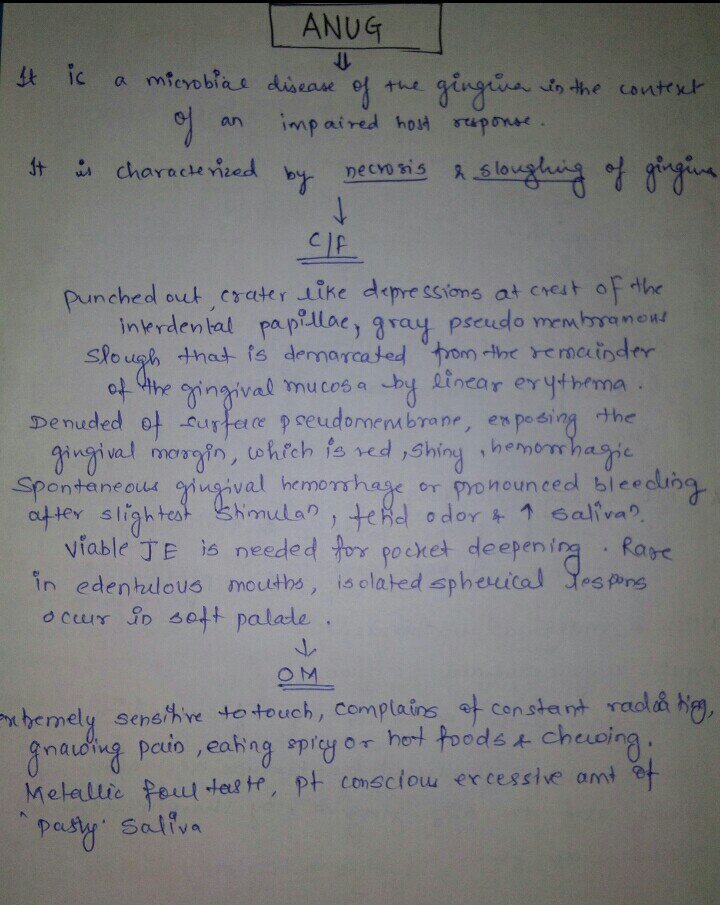 ANUG
It is a microbial disease of the gingiva in the context
of an impaired host response.
It is characterized by necrosis & sloughing of gingiva
C/F
Punched out, crater like depressions at crest of the
interdental papillae, gray pseudomembranous
Slough that is demarcated from the remainder
of the gingival mucosa by linear erythema.
Denuded of surface pseudomembrane, exposing the
gingival margin, which is red, shiny, hemorrhagic
Spontaneous gingival hemorrhage or pronounced bleeding
after slightest stimulan, fetid odor & ↑ salivan.
Viable JE is needed for pocket deepening. Rare
in edentulous mouths, isolated spherical lesions
occur in soft palate.
OM
extremely sensitive to touch, complains of constant radiating,
gnawing pain, eating spicy or hot foods & chewing.
Metallic foul taste, pt conscious excessive amt of
"pasty" saliva